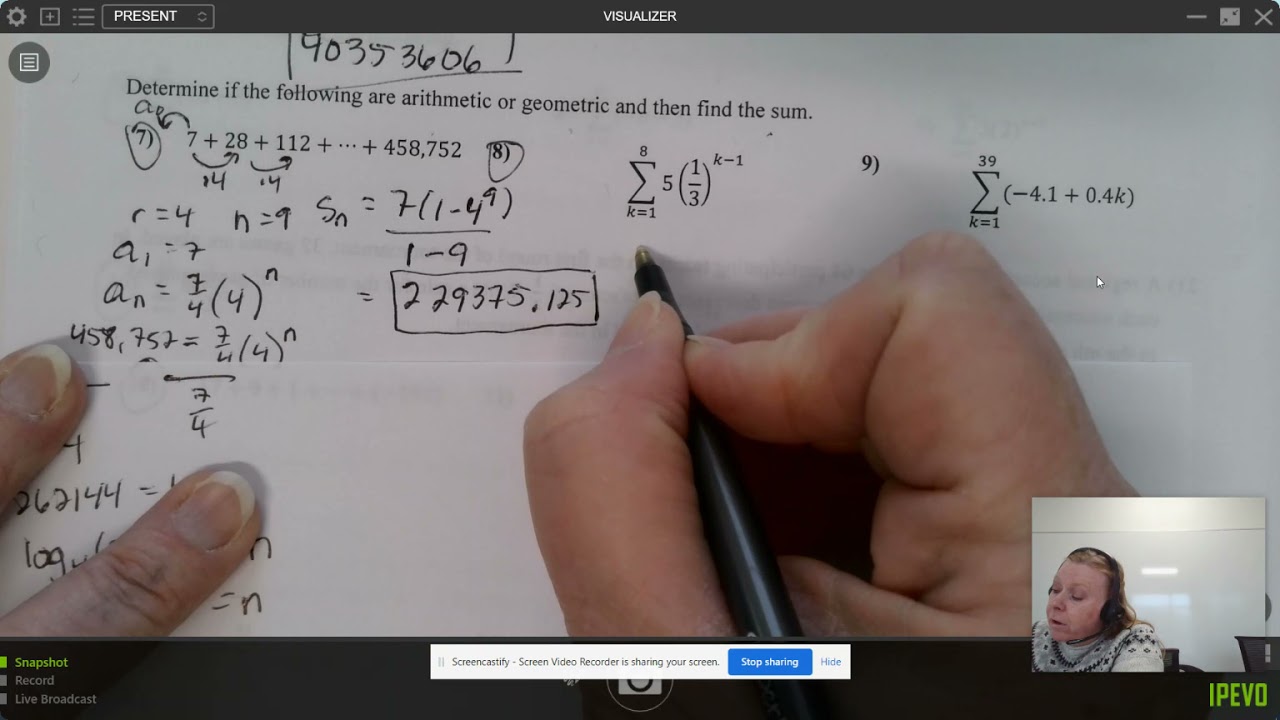 PRESENT
VISUALIZER
90353606
Determine if the following are arithmetic or geometric and then find the sum.
7) 7 + 28 + 112 + ⋯ + 458,752
·4 ·4
r = 4 n = 9 Sn = 7(1-4^9)
1-9
= 229375.125
a1 = 7
an = 7/4 (4)^n
458,752 = 7/4 (4)^n
7/4
4
262144 =
log4 n
= n
8) 8
∑ 5(1/3)^{k-1}
k=1
9) 39
∑ (−4.1 + 0.4k)
k=1
Screencastify - Screen Video Recorder is sharing your screen. Stop sharing Hide
Snapshot
Record
Live Broadcast
IPEVO